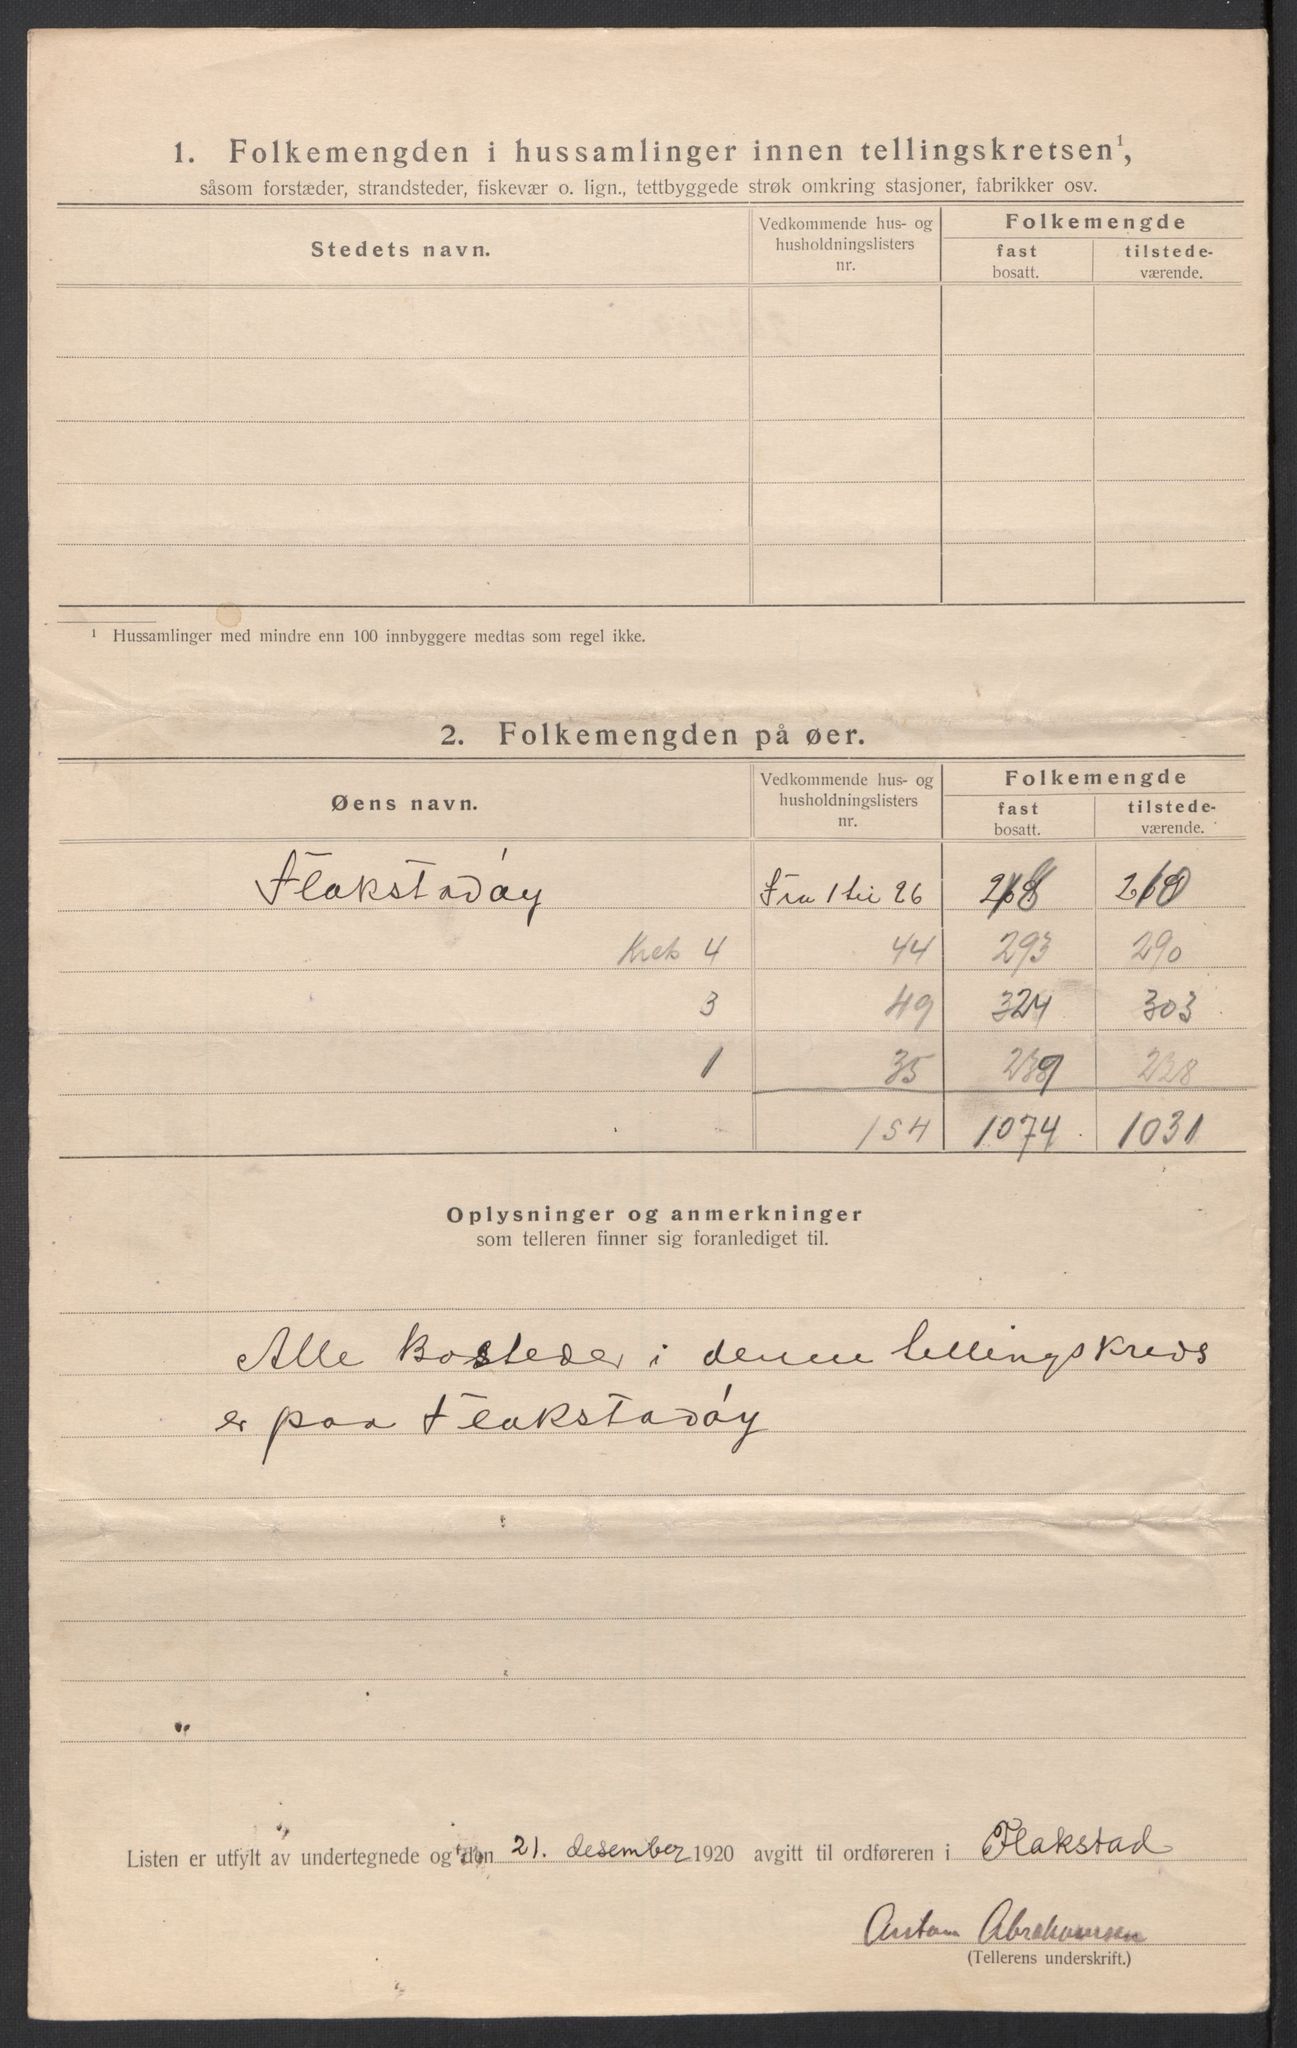 1. Folkemengden i hussamlinger innen tellingskretsen¹,
såsom forstæder, strandsteder, fiskevær o. lign., tettbyggede strøk omkring stasjoner, fabrikker osv.
Stedets navn.
Vedkommende hus- og husholdningslisters nr.
Folkemengde
fast bosatt.
tilstede-værende.
¹ Hussamlinger med mindre enn 100 innbyggere medtas som regel ikke.
2. Folkemengden på øer.
Øens navn.
Vedkommende hus- og husholdningslisters nr.
Folkemengde
fast bosatt.
tilstede-værende.
Flakstadøy Fra 1 til 26 218 210
Krets 4 44 293 290
3 49 324 303
1 35 239 228
154 1074 1031
Oplysninger og anmerkninger
som telleren finner sig foranlediget til.
Alle Bosteder i denne tellingskreds
er paa Flakstadøy
Listen er utfylt av undertegnede og den 21. desember 1920 avgitt til ordføreren i Flakstad
Anton Abrahamsen
(Tellerens underskrift.)